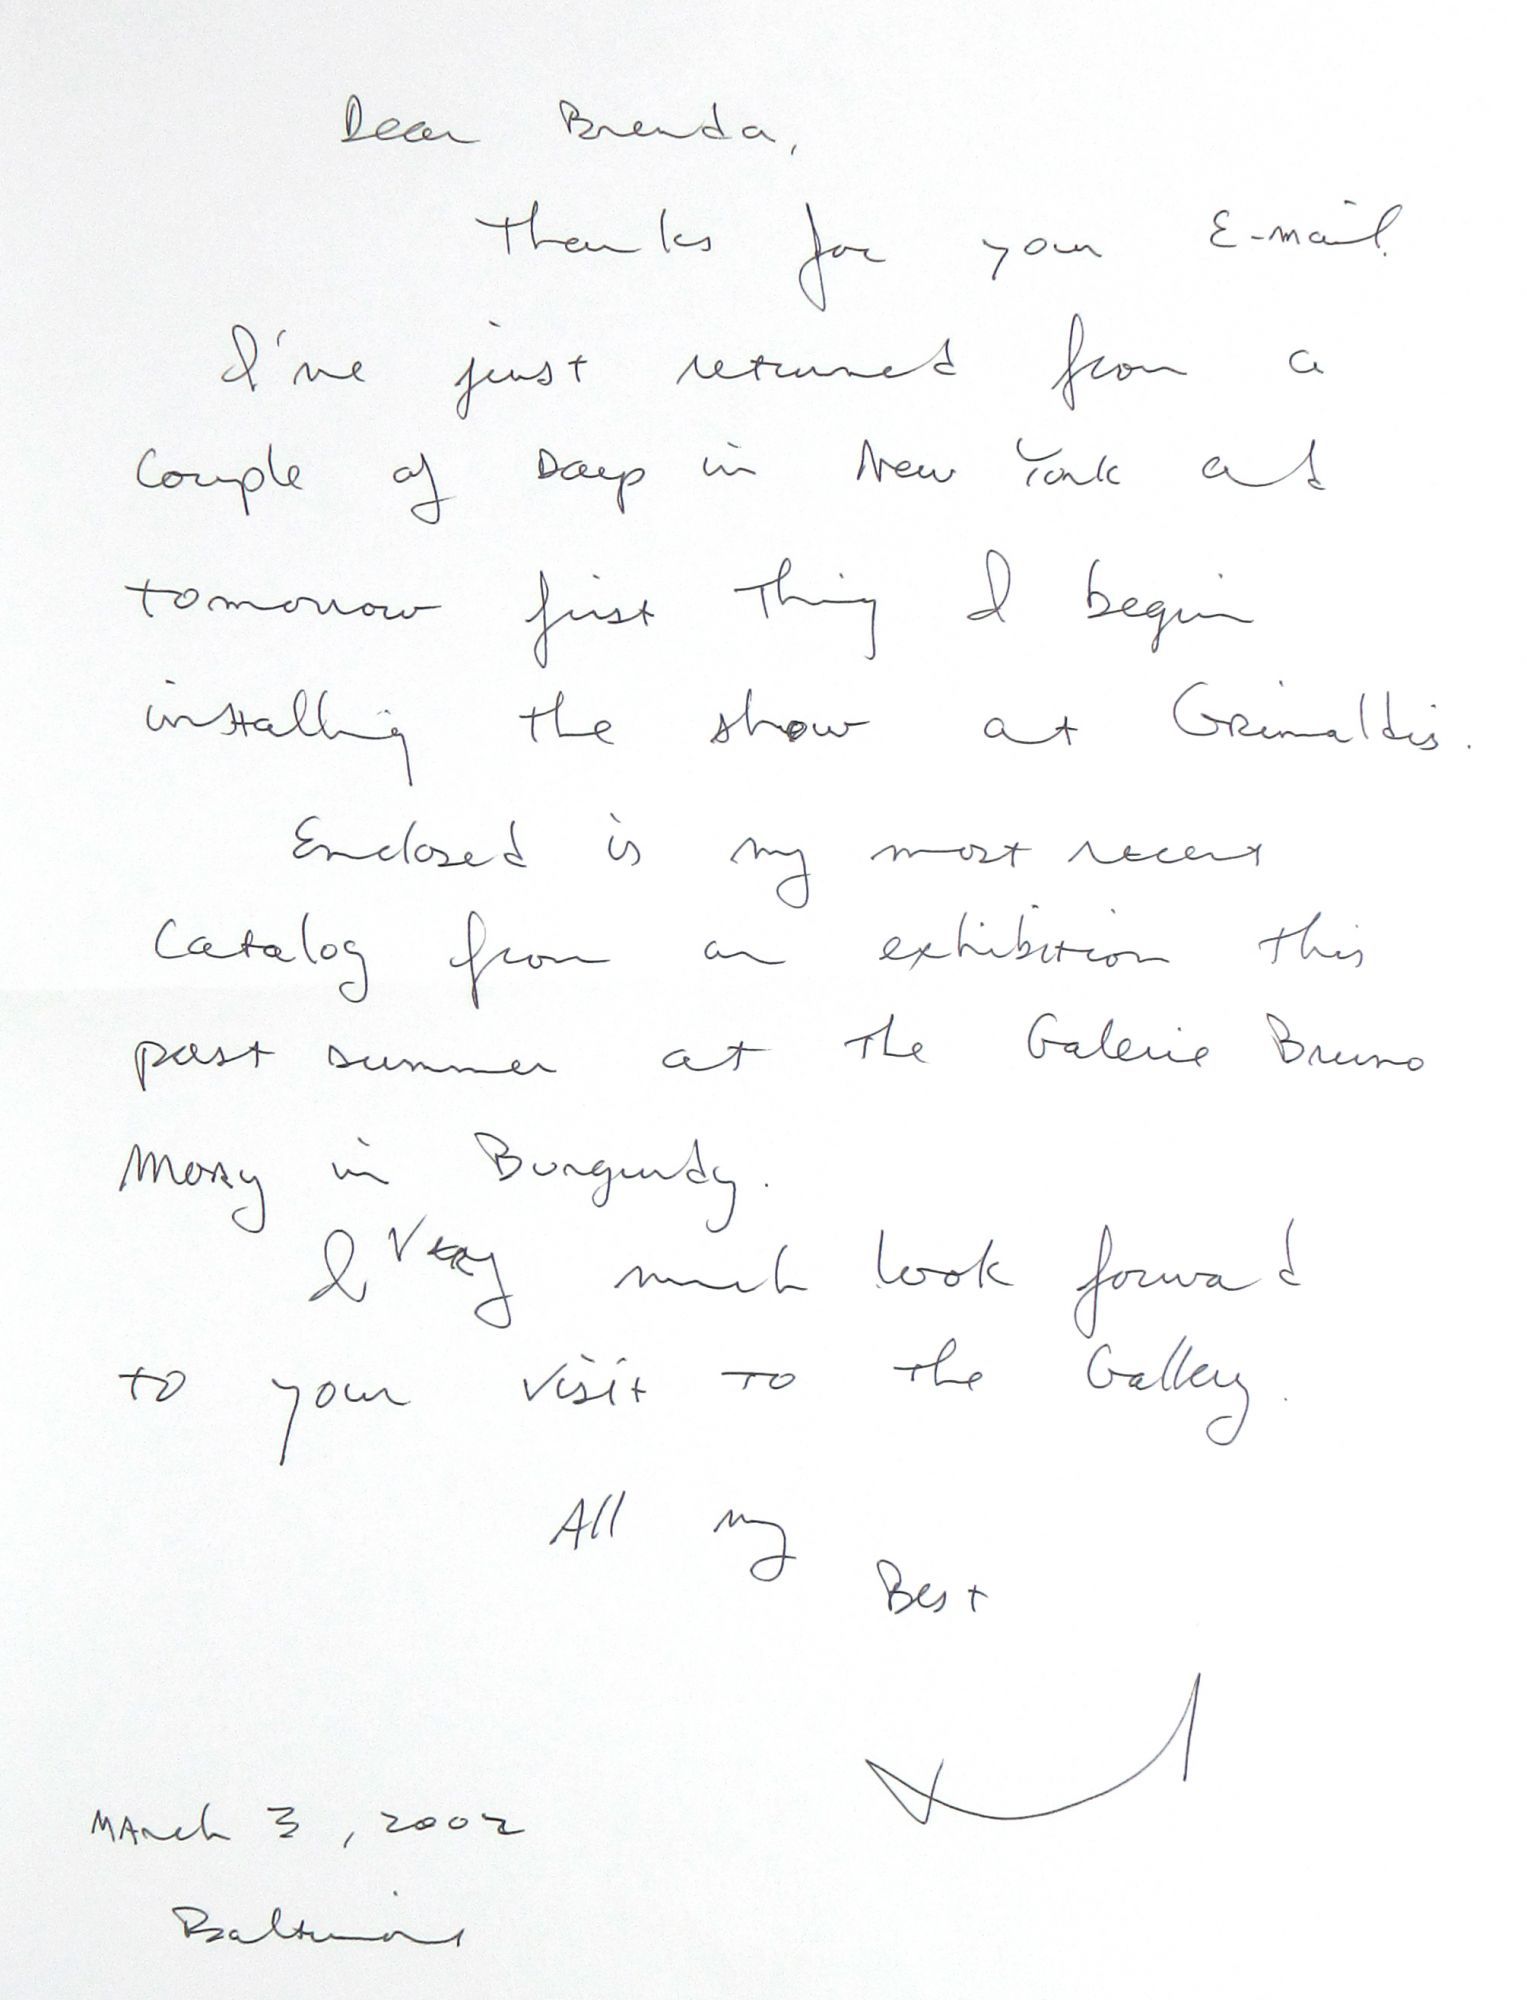 Dear Brenda,
Thanks for your E-mail.
I've just returned from a
Couple of Days in New York and
tomorrow first thing I begin
installing the show at Grimaldis.
Enclosed is my most recent
Catalog from an exhibition this
past summer at the Galerie Bruno
Mory in Burgundy.
I very much look forward
to your visit to the Gallery.
All my
Best
March 3, 2002
Baltimore